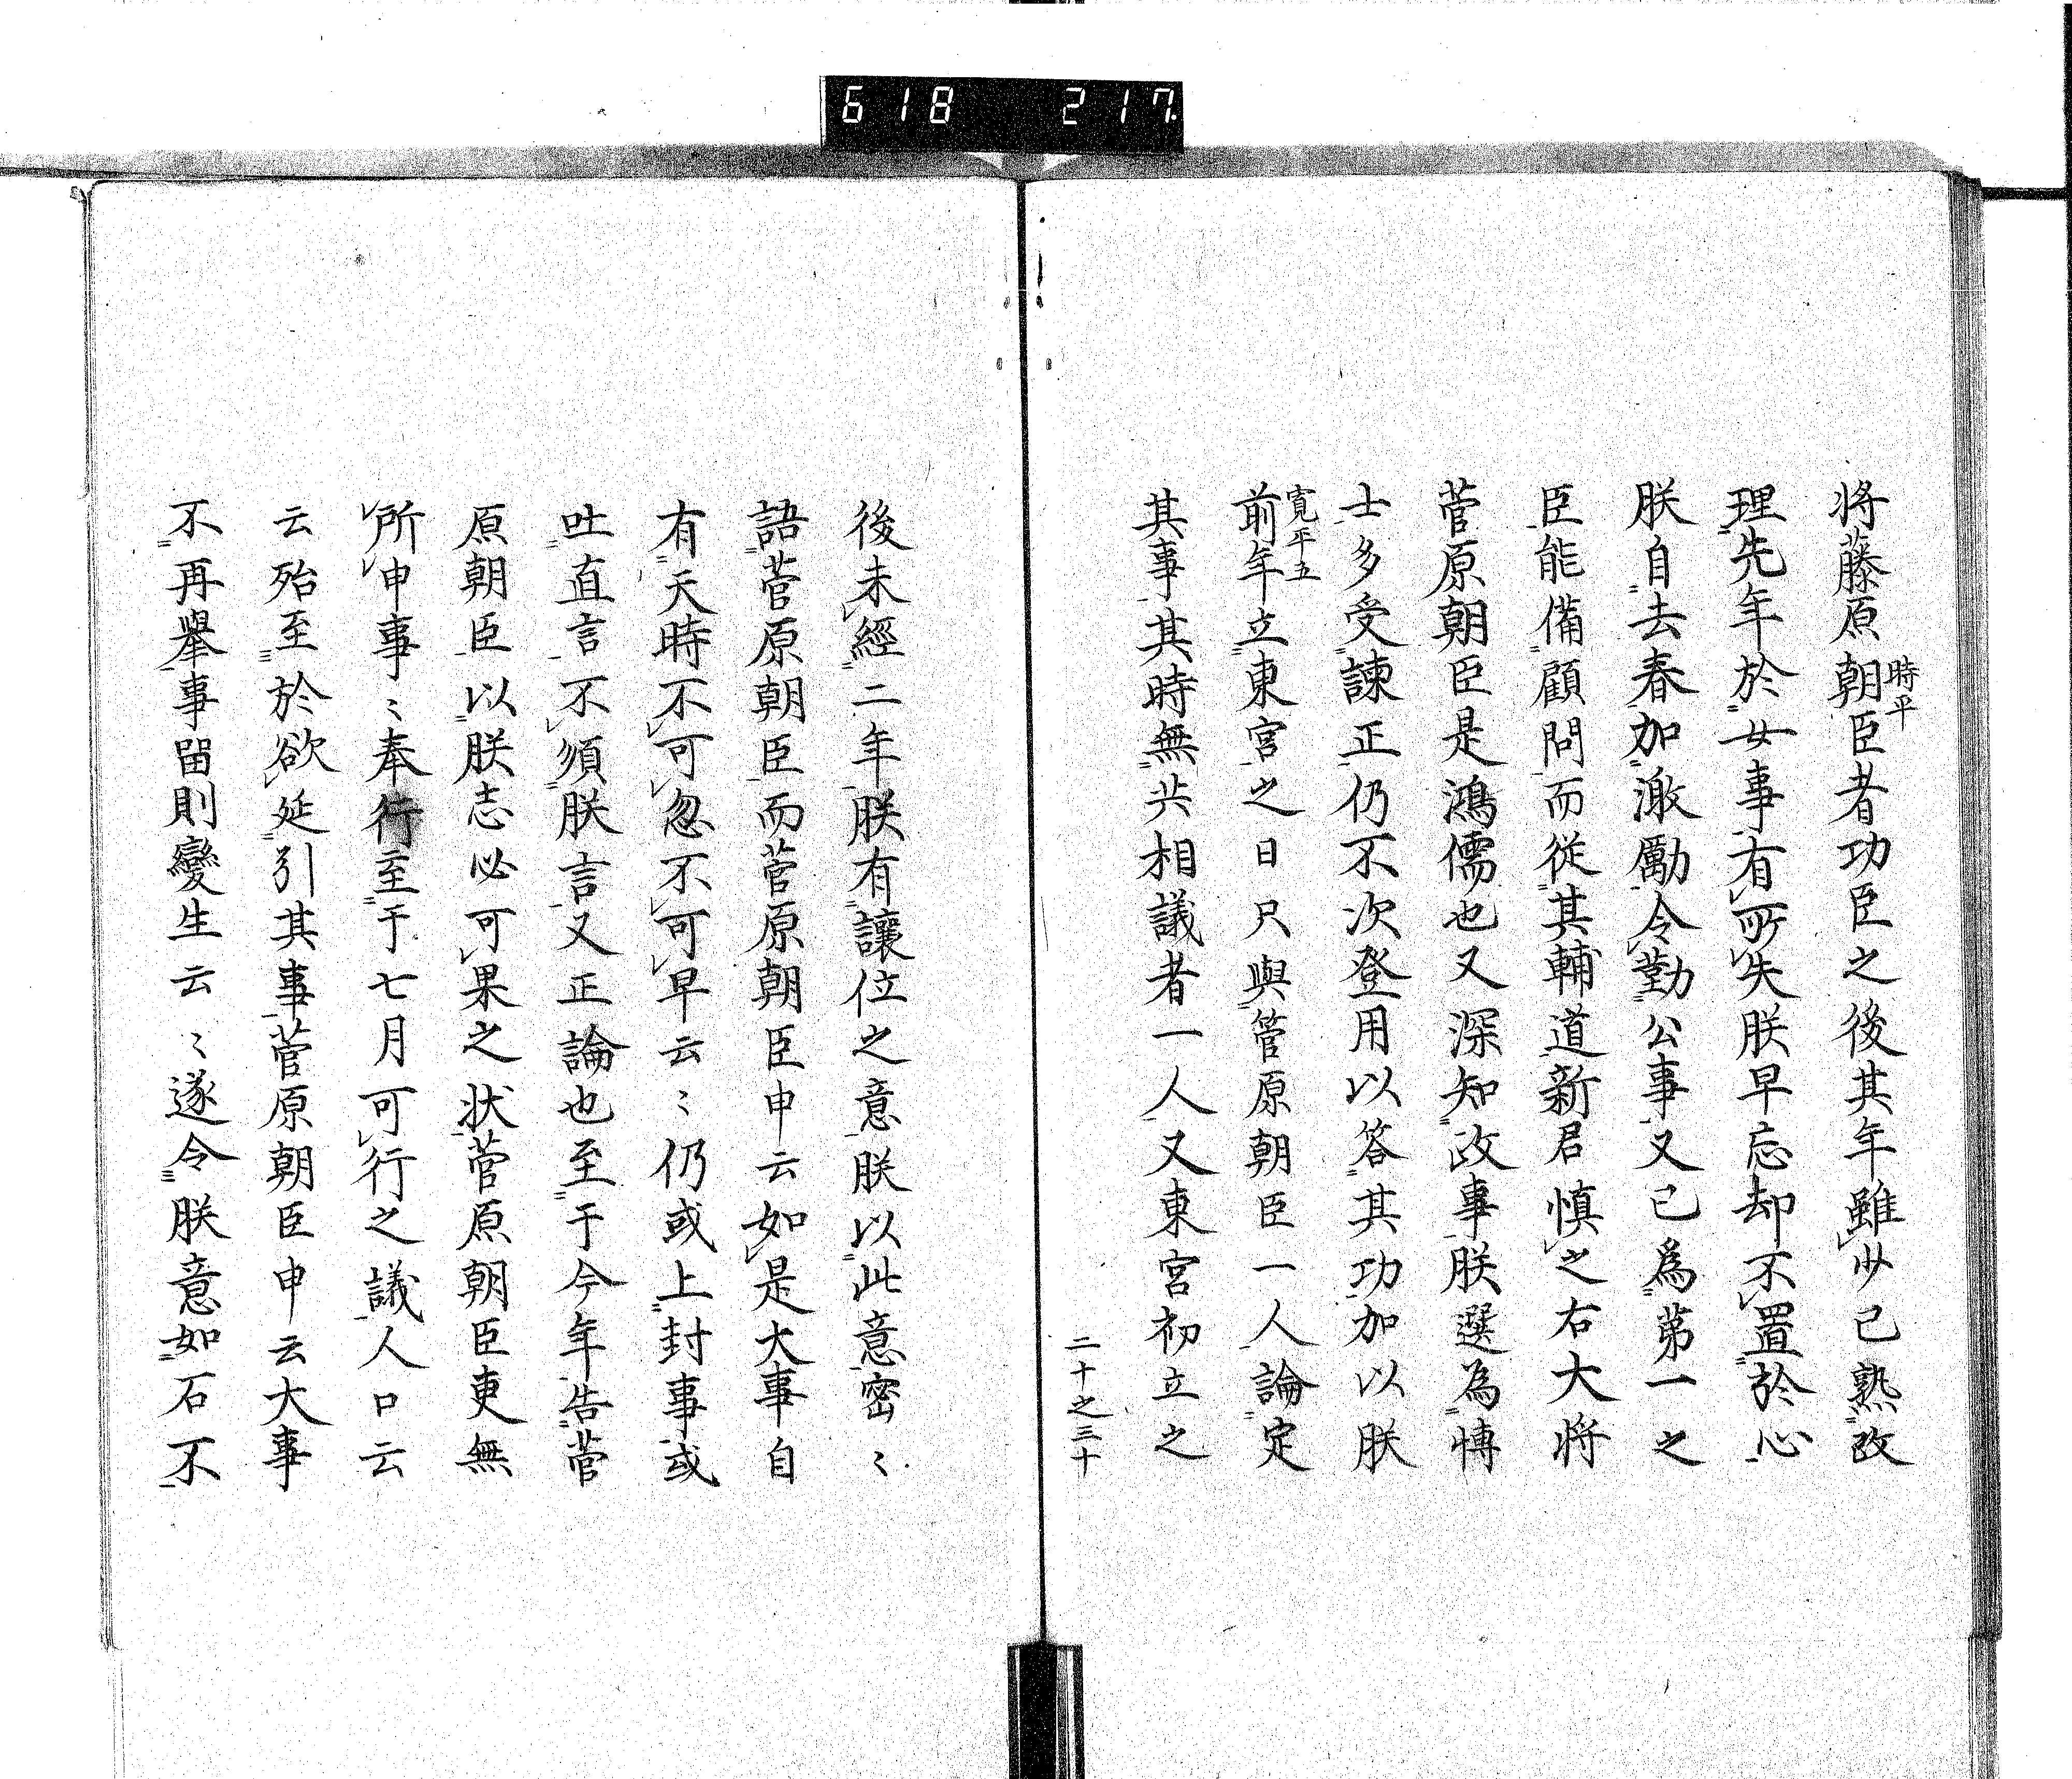 618 217
将藤原朝臣者功臣之後其年雖少已熟政
時平
理先年於女事有所失朕早忘却不置於心
朕自去春加激勵令勤公事又已爲第一之
臣能備顧問而從其輔道新君慎之右大將
菅原朝臣是鴻儒也又深知政事朕選為博
士多受諫正仍不次登用以答其功加以朕
寛平五
前年立東宮之日只與管原朝臣一人論定
其事其時無共相議者一人又東宮初立之
二十之三十
後未經二年朕有讓位之意朕以此意密〻
語菅原朝臣而菅原朝臣申云如是大事自
有天時不可忽不可早云〻仍或上封事或
吐直言不須朕言又正論也至于今年告菅
原朝臣以朕志必可果之状菅原朝臣更無
所申事〻奉行至于七月可行之議人口云
云殆至於欲延引其事菅原朝臣申云大事
不再舉事留則變生云〻遂令朕意如石不